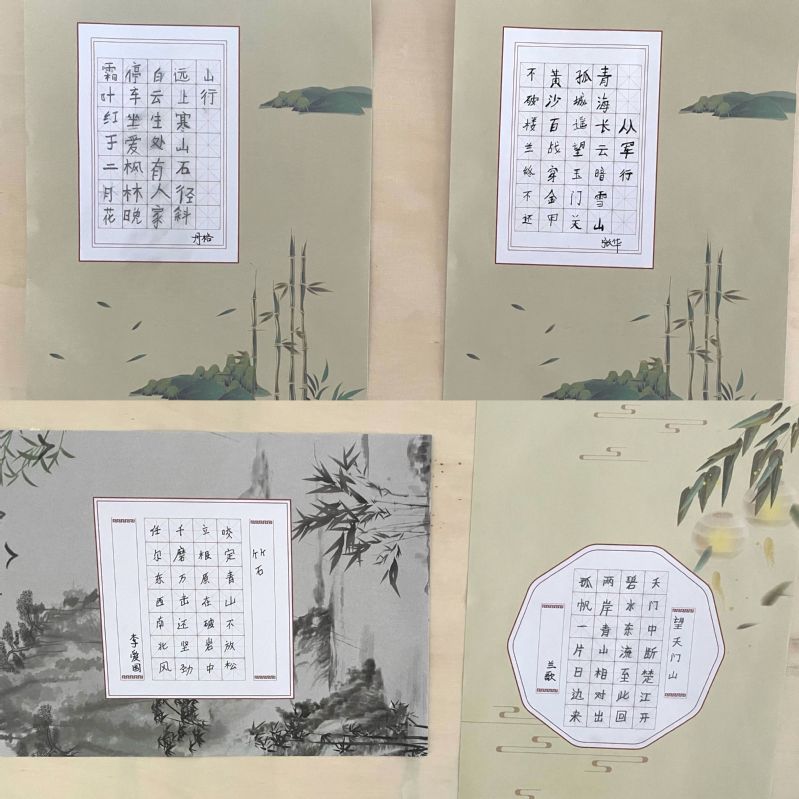 山行
远上寒山石径斜
白云生处有人家
停车坐爱枫林晚
霜叶红于二月花
从军行
青海长云暗雪山
孤城遥望玉门关
黄沙百战穿金甲
不破楼兰终不还
竹石
咬定青山不放松
立根原在破岩中
千磨万击还坚劲
任尔东西南北风
李爱国
望天门山
天门中断楚江开
碧水东海至此回
两岸青山相对出
孤帆一片日边来
兰歌